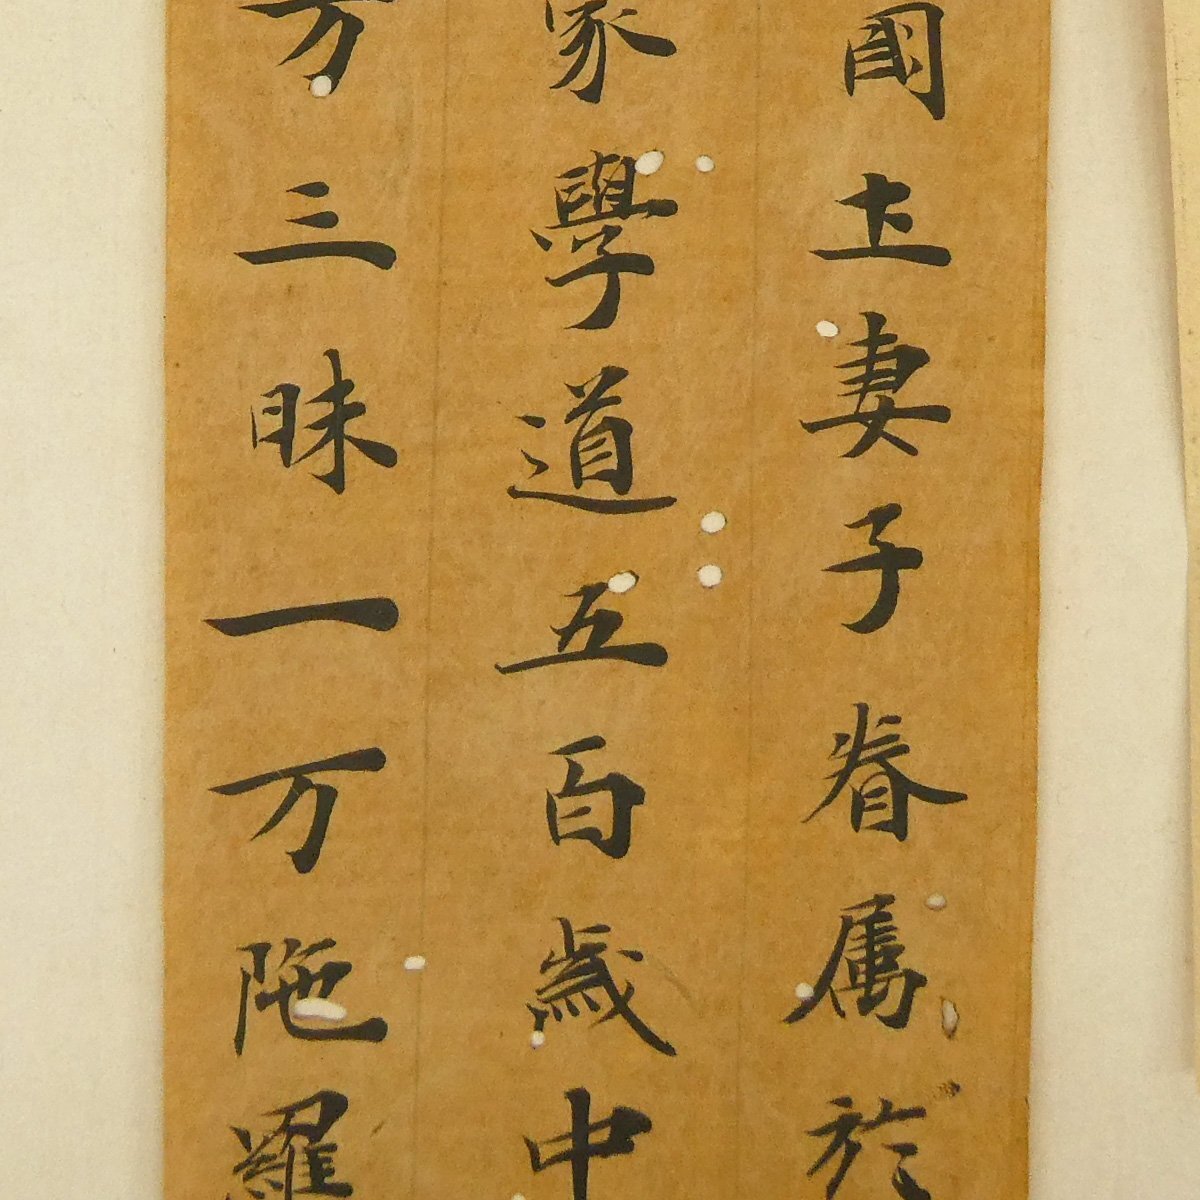 國土妻子眷属於
家學道五百歳中
万三昧一万陁羅